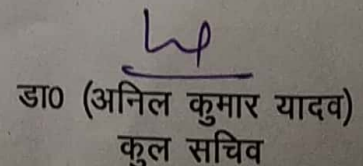 डा0 (अनिल कुमार यादव)
कुल सचिव